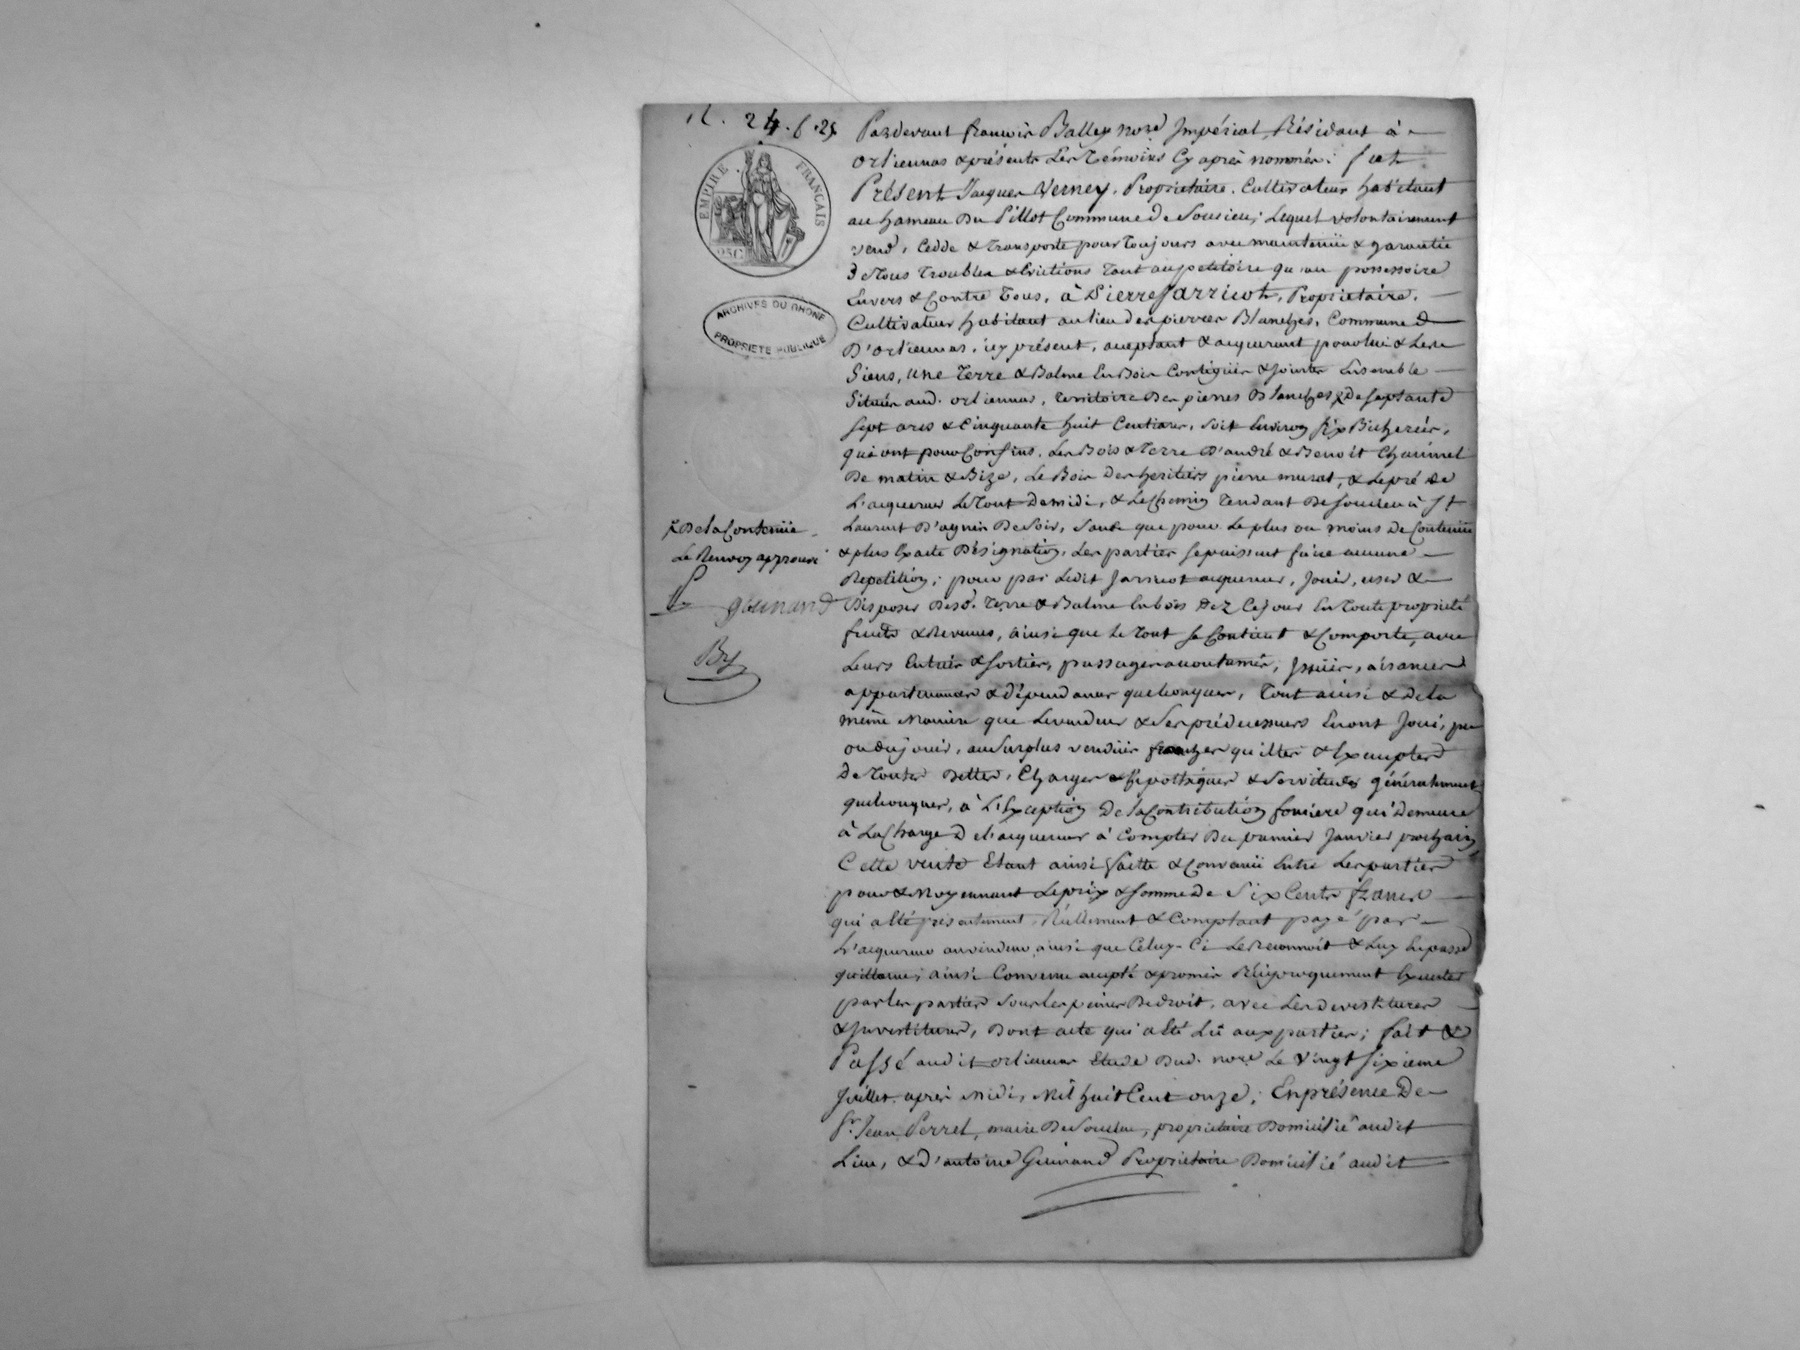 24. f. 25
EMPIRE FRANÇAIS
25C.
ARCHIVES DU RHONE
PROPRIETE PUBLIQUE
Pardevant francois Balley nore Impérial, Résidant à
orlienas & présents Les Témoins Cy après nommés; fut
Présent Jacques Verney, Proprietaire, Cultivateur habitant
au hameau Du Pillot Commune De Soucieu; Lequel volontairement
vend, Cedde & transporte pour Toujours avec maintenüe & garantie
De Tous Troubles & Evictions Tant au petitoire qu'au possessoire
Envers & Contre Tous, à Pierre Jarricot, Proprietaire,
Cultivateur habitant au lieu des pierres Blanches, Commune
D'orlienas, icy présent, aceptant & aquerant pour lui & Les
Siens, une Terre & Balme En Bois Contigües & Jointes Ensemble
Situées aud. orlienas, territoire Des pierres Blanches & De Septante
Sept ares & Cinquante huit Centiares, Soit Environ Six Bicherées,
qui ont pour Confins, Les Bois & Terre D'andré & Benoit Chaumel
De matin & Bize, Le Bois Des heritiers pierre murat, & Le pré De
L'aquereur Le Tout De midi, & Le Chemin Tendant De Soucieu à St
Laurent D'agnis De Soir, Sans que pour Le plus ou moins De Contenüe
& plus Exacte Désignation, Les parties Se puissent faire aucune
Repetition; pour par Ledit Jarricot aquereur, Jouir, user &
Disposer Desd. Terre & Balme En bois Dez Ce jour En Toute proprieté
fruits & Revenus, ainsi que Le Tout Se Contient & Comporte, avec
Leurs Entrées & Sorties, passages acoutumés, Issües, aisances
appartenances & Dépendances quelconques, Tout ainsi & De la
même Manière que Le vendeur & Ses prédecesseurs En ont Joui, pu
ou dû jouir, au Surplus vendües franches quittes & Exemptes
De Toutes Dettes, Charges & hipothèques & Servitudes généralement
quelconques, à L'Exception De La Contribution fonciere qui Demeure
à La Charge De L'aquereur à Compter Du premier Janvier prochain
Cette vente Etant ainsi faitte & Convenüe Entre Les parties
pour & Moyennant Le prix & Somme De Six Cents francs
qui a Eté présentement Réellement & Comptant payé par
L'aquereur au vendeur ainsi que Celuy-Ci Le Reconnoit & Luy En passe
quittance; ainsi Convenu acepté & promis Réciproquement Executer
par Les parties Sous Les peines De droit, avec Les devestitures
& Investitures, Dont acte qui a Eté Lû aux parties; fait &
Passé audit orlienas Etude Dud. nore Le vingt Sixieme
Juillet après Midi, Mil huit Cent onze; En présence De
Sr. Jean Perret, maire De Soucieu, proprietaire Domicilié audit
Lieu, & D'antoine Guinand Proprietaire Domicilié audit
& De la Contenüe
Le Renvoy approuvé
guinand
By